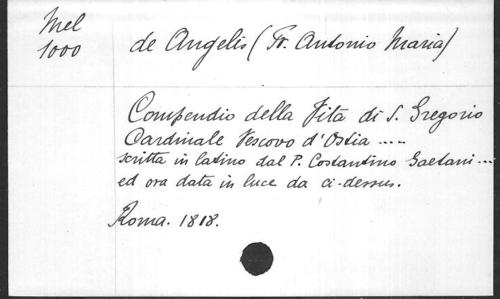 Mel
1000
de Angelis (Fr. Antonio Maria)
Compendio della Vita di S. Gregorio
Cardinale Vescovo d'Ostia .....
scritta in latino dal P. Costantino Gaetani ....
ed ora data in luce da ci-dessus.
Roma. 1818.